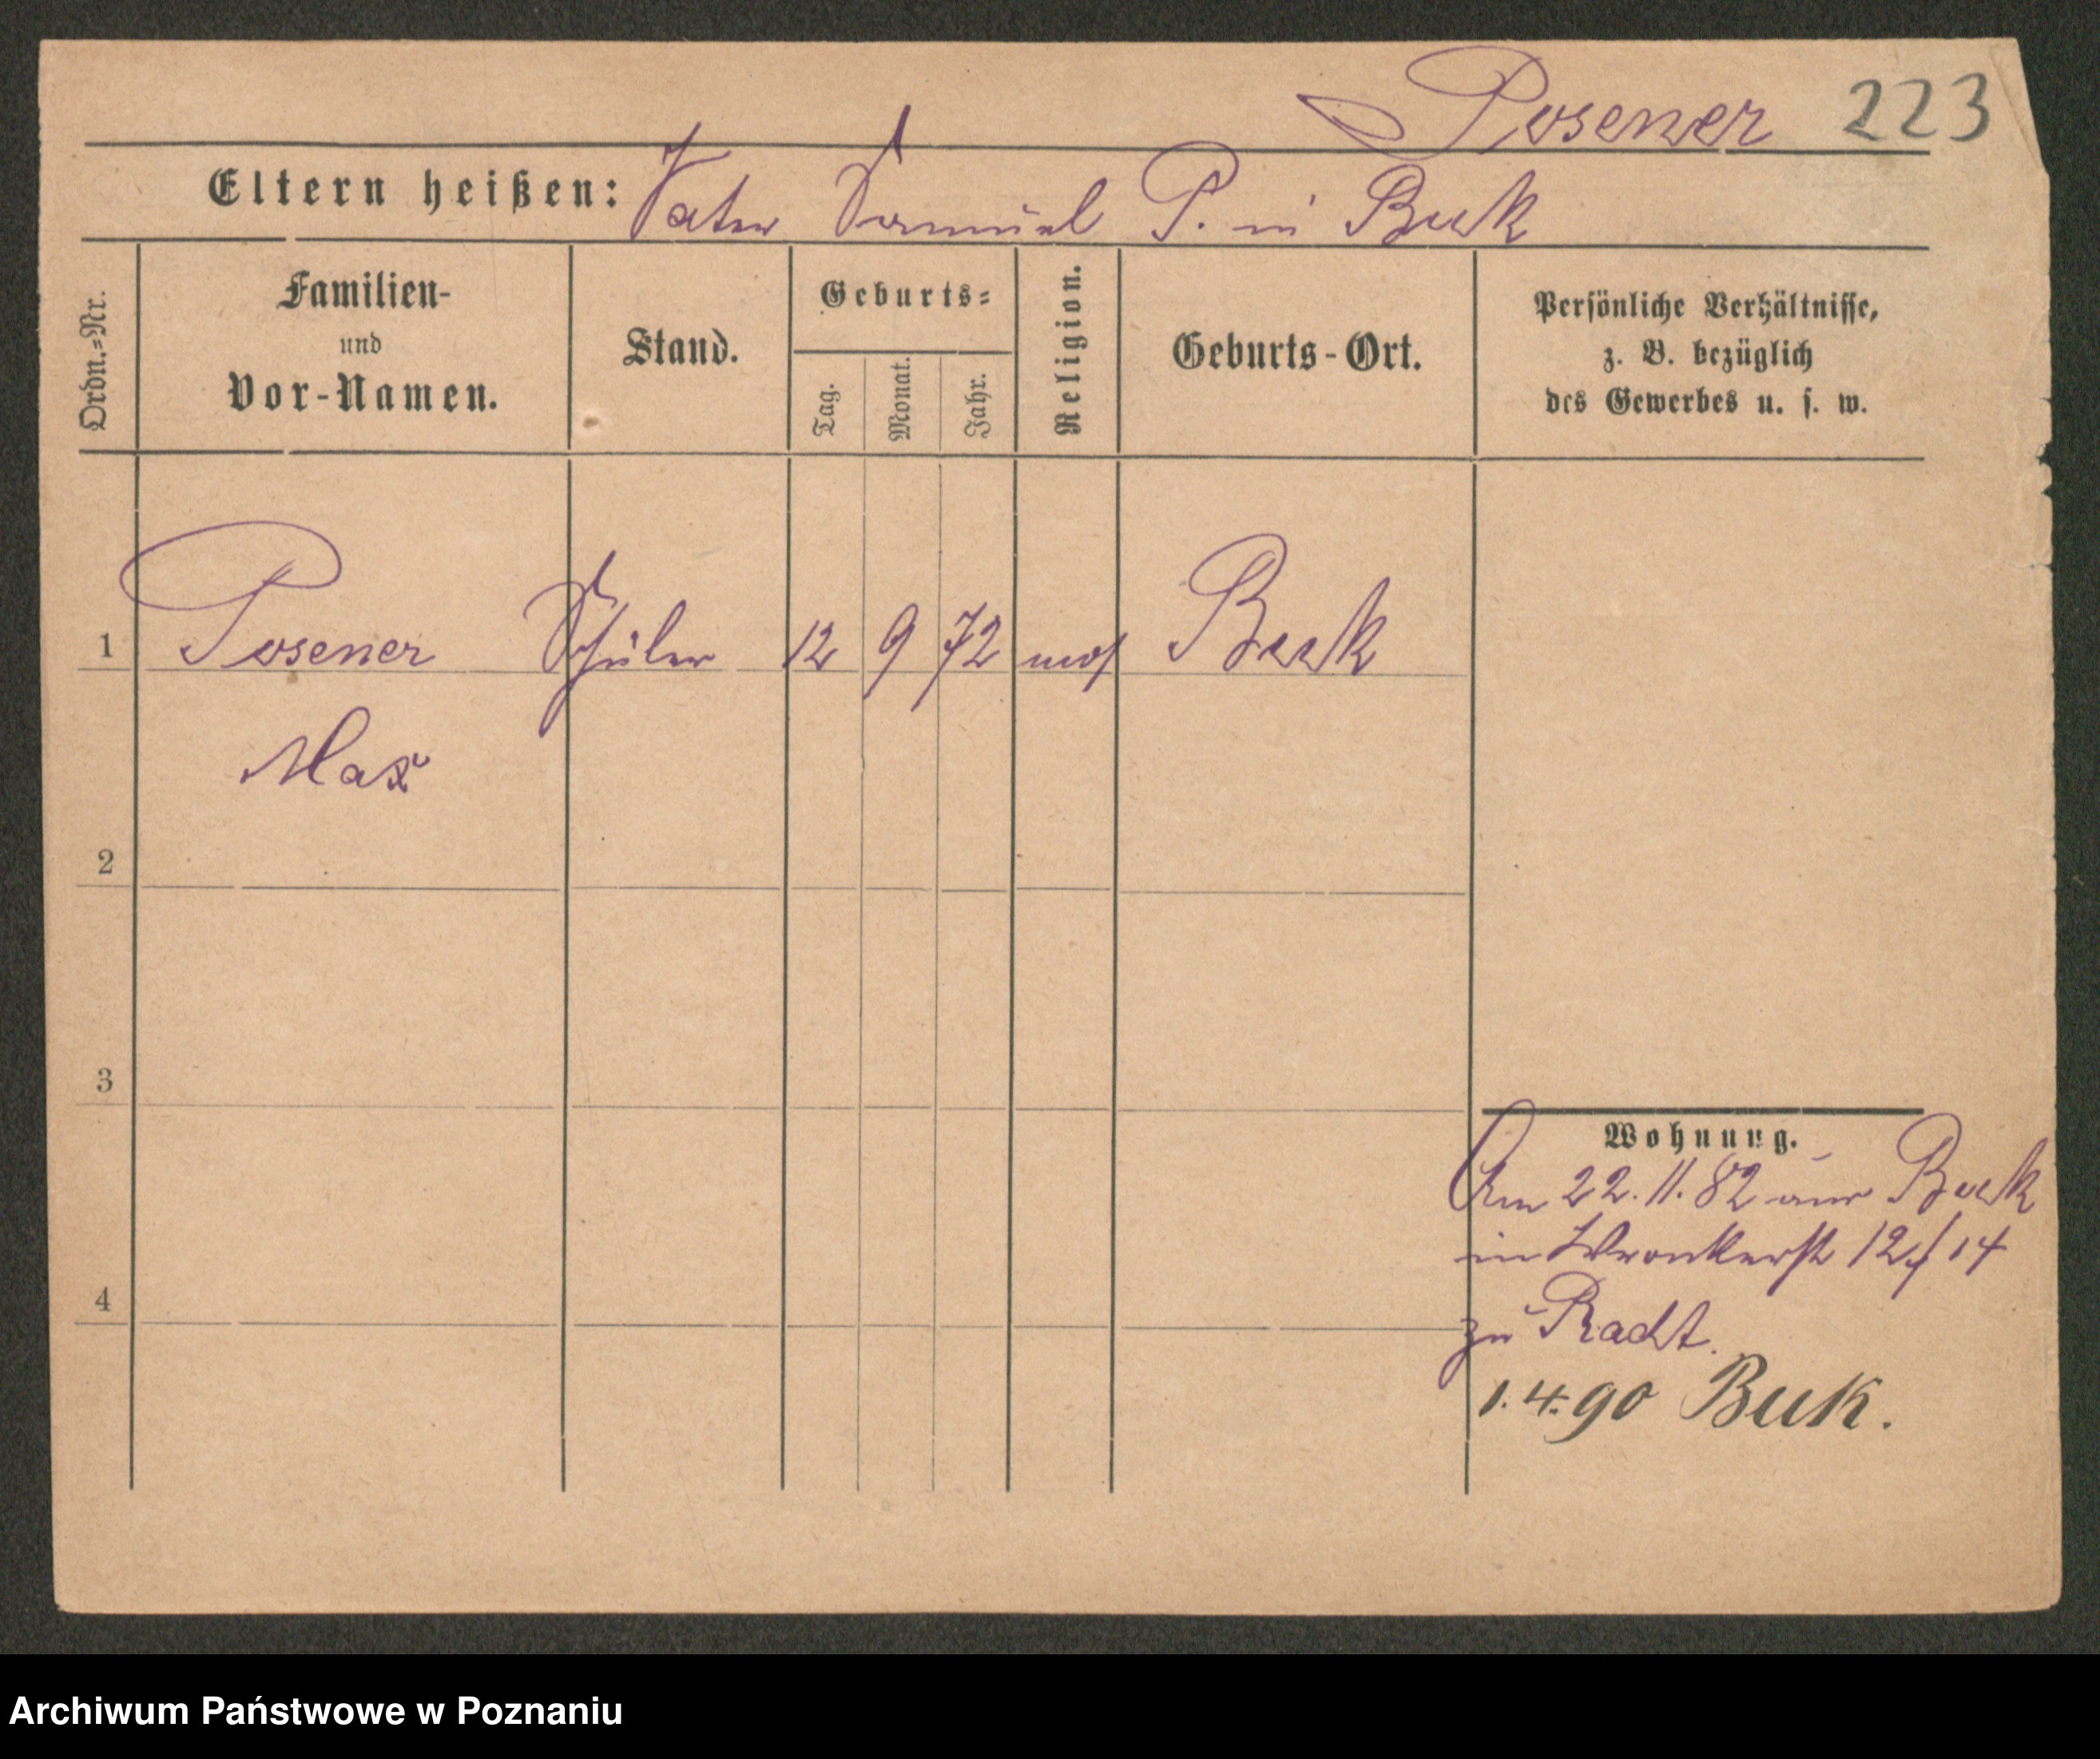 Posener 223
Eltern heißen: Vater Samuel P. in Buk
Ordn.-Nr.
Familien- und Vor-Namen.
Stand.
Geburts-
Tag.
Monat.
Jahr.
Religion.
Geburts-Ort.
Persönliche Verhältnisse,
z. B. bezüglich
des Gewerbes u. s. w.
1 Posener Schüler 12 9 72 mos Buk
Max
2
3
4
Wohnung.
Am 22.11.82 aus Buk
in Wronkerstr 12/14
zu Radt.
1.4.90 Buk.
Archiwum Państwowe w Poznaniu